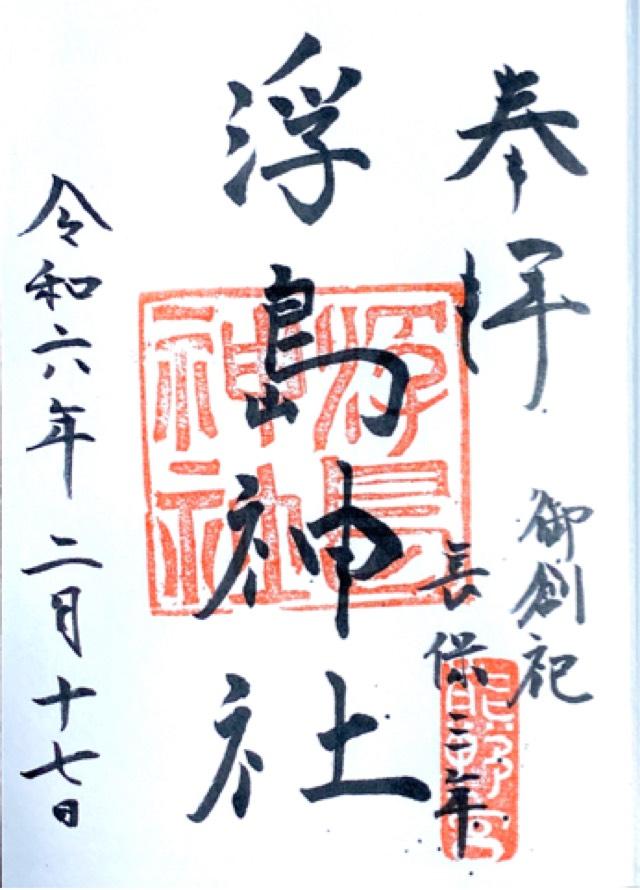 奉拝
御創祀
長保三年
熊野宮
浮島神社
浮島
神社
令和六年二月十七日